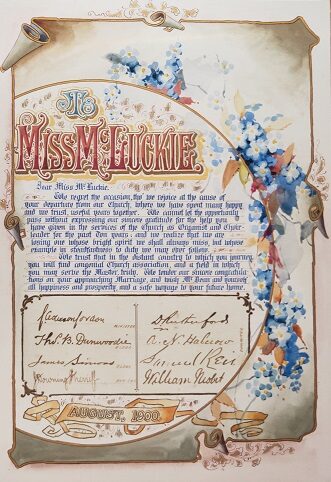 To
MISS McLUCKIE.
Dear Miss McLuckie.
We regret the occasion, tho' we rejoice at the cause of
your departure from our Church, where we have spent many happy
and we trust, useful years together. We cannot let the opportunity
pass without expressing our sincere gratitude for the help you
have given in the services of the Church as Organist and Choir
leader for the past Ten years and we realize that we are
losing one whose bright spirit we shall always miss, but whose
example in steadfastness to duty we may ever follow.
We trust that in the distant country to which you journey
you will find congenial Church association, and a field in which
you may serve the Master truly. We tender our sincere congratula-
tions on your approaching Marriage, and wish Mr and yourself
all happiness and prosperity, and a safe voyage to your future home.
D. Rutherford
Thos. B. Dunwoodie
James Simons
Samuel Keir
William
AUGUST, 1900.